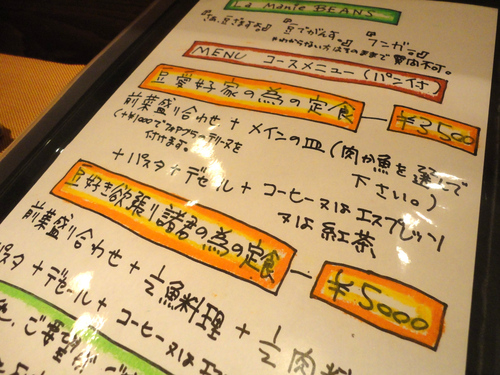 La Manie BEANS
豆でがんす。
わからない方はそのままで質問不可。
MENU コースメニュー(パン付)
豆愛好家の為の定食 — ¥3500
前菜盛り合わせ + メインの皿(肉か魚を選んで下さい。)
(+¥1000でフォアグラのテリーヌを付けます。
+ パスタ + デセール + コーヒー又はエスプレッソ
又は 紅茶
豆好き欲張り諸君の為の定食 — ¥5000
前菜盛り合わせ + 1/2魚料理 + 1/2肉料
パスタ + デセール + コーヒー又はエス